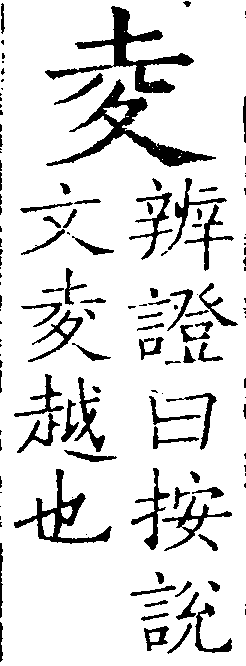 夌
辨證曰按說
文夌越也